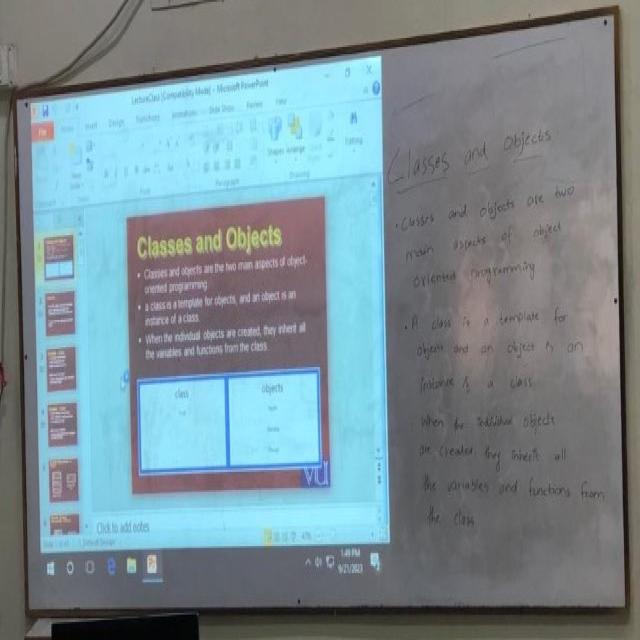 LectureClass [Compatibility Mode] - Microsoft PowerPoint
File
Home
Insert
Design
Transitions
Animations
Slide Show
Review
View
Shapes
Arrange
Paragraph
Drawing
Editing
Classes and Objects
• Classes and objects are the two main aspects of object-
oriented programming
• a class is a template for objects, and an object is an
instance of a class.
• When the individual objects are created, they inherit all
the variables and functions from the class.
class
objects
VU
Click to add notes
47%
1:49 PM
9/21/2023
Classes and Objects
• Classes and objects are two
main aspects of object
oriented programming
• A class is a template for
objects and an object is an
instance of a class
When the individual objects
are created, they inherit all
the variables and functions from
the class